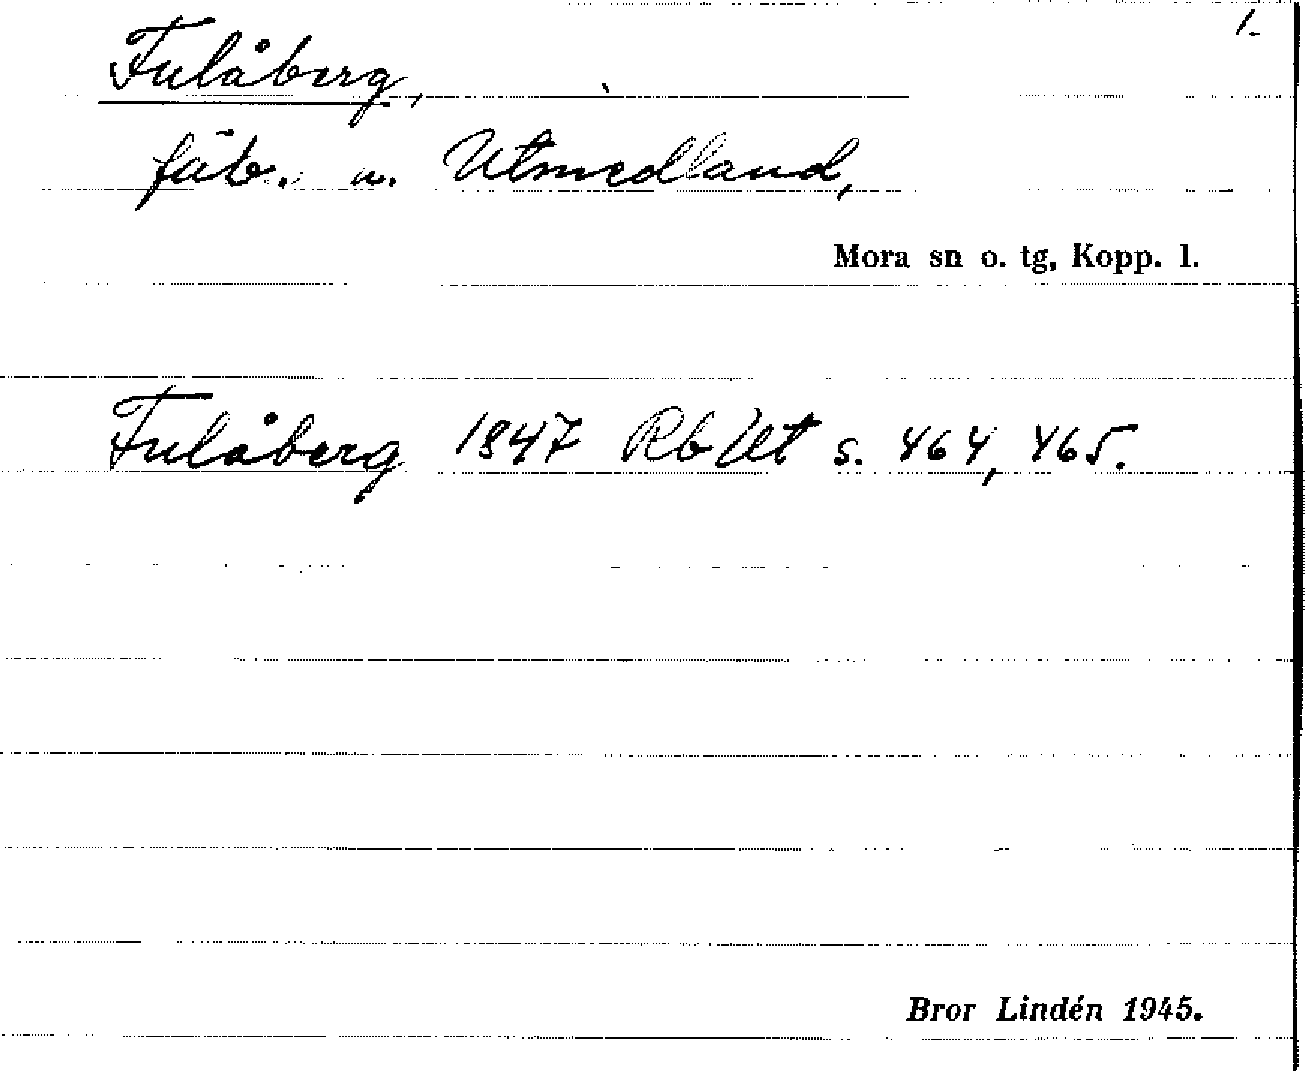 1.
Fulåberg,
fäb. u. Utmedland,
Mora sn o. tg, Kopp. l.
Fulåberg 1847 Rb Ut s. 464, 465.
Bror Lindén 1945.